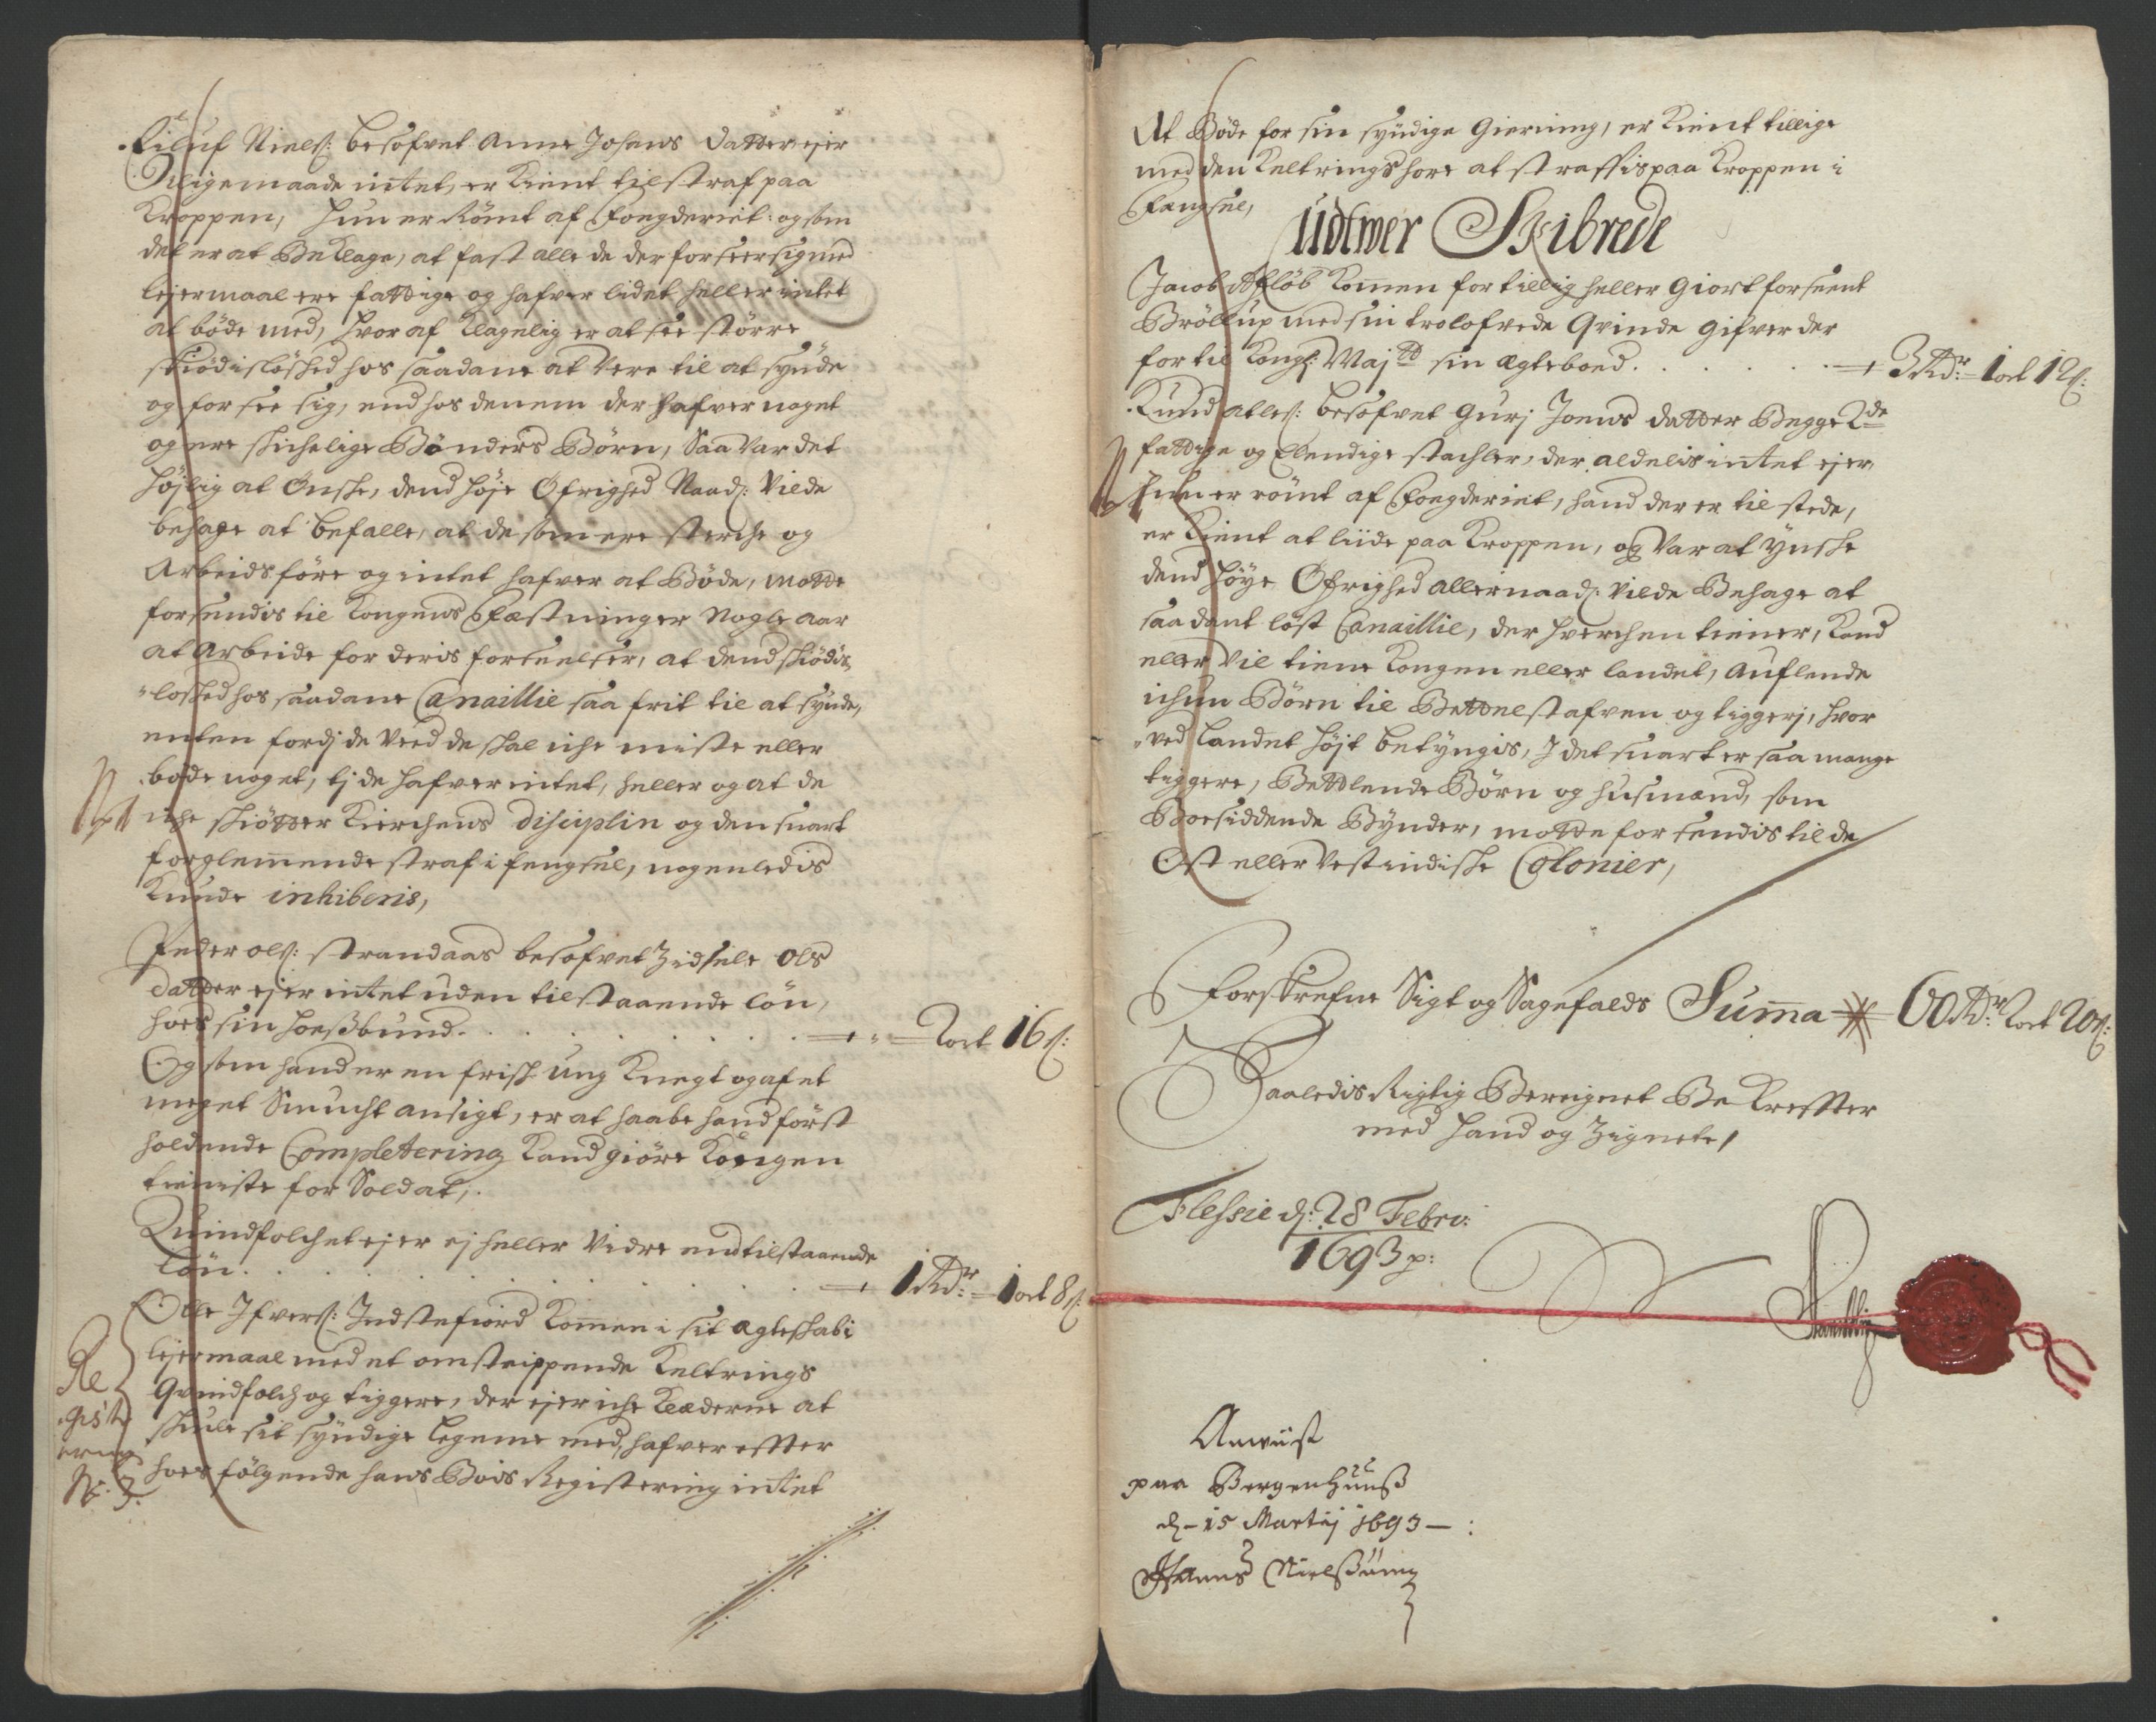 Eiluf Niels: besofvet Anne Johans datter ejer
Iligemaade intet, er kient til straf paa
Kroppen, hun er Römt af Fougderiet: og som
det er at Beklage, at fast alle de der forseer sig med
lejermaal ere fattige og hafver lidet heller intet
at böde med, hvoraf klagelig er at see större
skiödislöshed hos saadane at vere til at synde
og forsee sig, end hos denem der hafver noget
og ere skichelige Bönders Börn, Saa var det
höjlig at Önske, dend höje Öfrighed Naad: Vilde
behage at befalle, at de som ere sterche og
Arbeids före og intet hafver at Böde, motte
forsendis til Kongens Fæstninger Nogle aar
at Arbeide for deris forseelser, at dend skiödis-
löshed hos saadane Canaillie saa frit til at synde,
enten fordj de Veed de skal iche miste eller
böde noget, tj de hafver intet, heller og at de
iche skiötter Kierchens Disciplin og den snart
forglemmende straf i fengsel, nogenledis
Kunde inhiberis,
Peder Ols: Strandaas besofvet Zidsele Ols
datter ejer intet uden tilstaaende lön,
hoes sin hoessbund. 2 ort 16 s:
Og som hand er en frisk ung Knegt og af et
meget Smucht ansigt, er at haabe hand först
holdende Completering Kand giöre Kongen
tieniste for Soldat,
Quindfolchet ejer ej heller Vidre end tilstaaende
lön. 1 Rdr: 1 ort 8 s:
Olle Ifvers: Indstefiord Kommen i sit Ægteskab i
lejermaal med et omstrippende Keltrings
Qvindfolch og tiggere, der ejer iche Klæderne at
skiule sit syndige legeme med, hafver effter
hoes fölgende hans Bois Registering intet
Re
gist
ering
No. 3.
At Böde for sin syndige Gierning, er kient tillige
med den Keltrings hore at straffis paa Kroppen i
Fængsel,
Udtwer Skibrede
Jacob Aflöb Kommen for tillig heller giort for seent
Bröllup med sin trolofvede Qvinde gifver der
for til Kongl: Maj:tt sin ægteboed. 3 Rdr: 1 ort 12 s:
Knud Atles: besofvet Gurj Joens datter Begge 2de
fattige og Elendige stachler, der aldelis intet ejer
hun er römt af Fougderiet, hand der er til stede,
er kient at liide paa Kroppen, og var at ynske
dend höye Öfrighed allernaad: Vilde Behage at
saadant löst Canaillie, der hverchen tiener, kand
eller Vil tiene Kongen eller landet, Auflende
ichun Börn til Bettelstafven og tiggerj, hvor
ved landet höjt betyngis, J det snart er saa mange
tiggere, Bettlende Börn og husmænd, som
Boesiddende Bynder, motte forsendis til de
Ost eller Vestindiske Colonier,
Forskrefne Sigt og Sagefalds Summa 60 Rdr: 2 ort 20 s:
Saaledis Rigtig Beregnet Bekreffter
med Haand og Zignete,
Flessie d: 28 Febru:
1693 p:
Anviist
paa Bergenhuuss
d – 15 Martij 1693 – :
Hanns Nielssönn